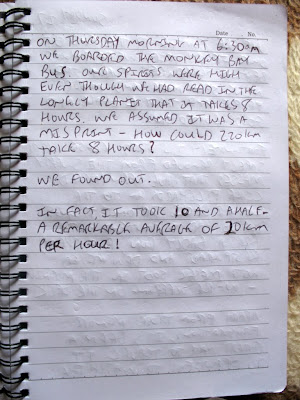 Date No.
ON THURSDAY MORNING AT 6:30am
WE BOARDED THE MONKEY BAY
BUS. OUR SPIRITS WERE HIGH
EVEN THOUGH WE HAD READ IN THE
LONELY PLANET THAT IT TAKES 8
HOURS. WE ASSUMED IT WAS A
MISPRINT - HOW COULD 220km
TAKE 8 HOURS?
WE FOUND OUT.
IN FACT, IT TOOK 10 AND A HALF -
A REMARKABLE AVERAGE OF 20km
PER HOUR!